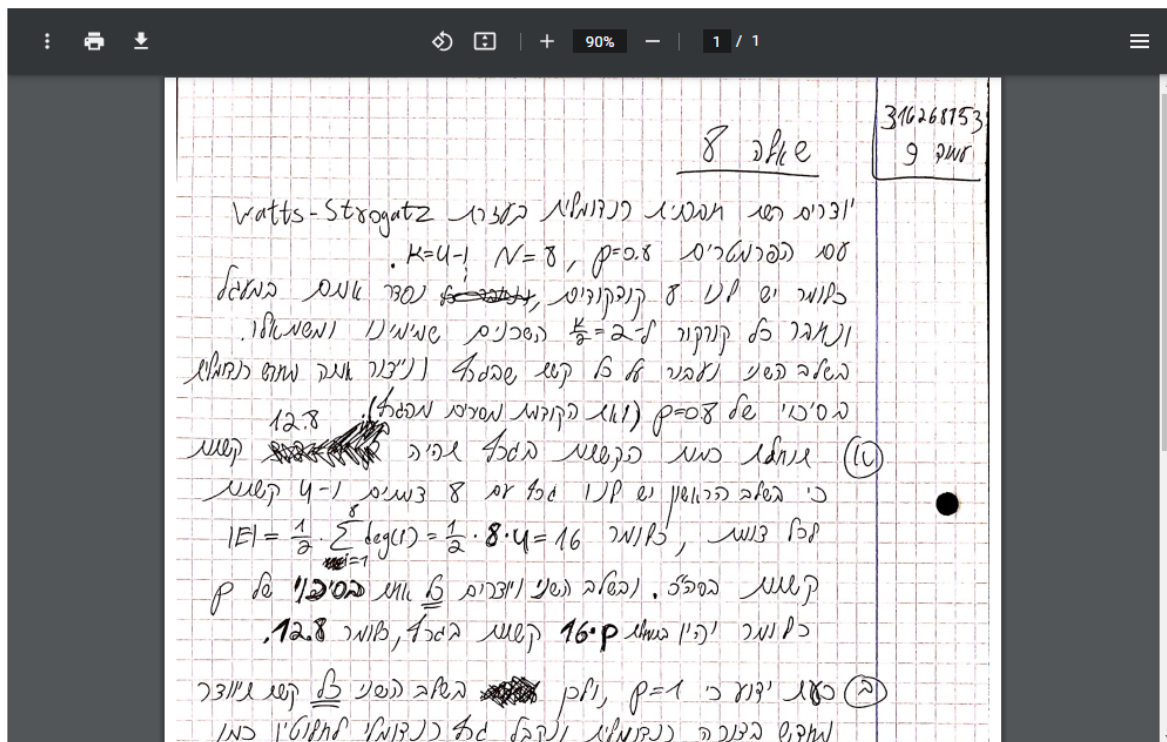 90%
1 / 1
316268153
עמוד 9
שאלה 8
יוצרים רשת חברתית רנדומלית בעזרת Watts-Strogatz
עם הפרמטרים p=0.8 , N=8 ו-K=4.
כלומר יש לנו 8 קודקודים, נסדר אותם במעגל
ונחבר כל קודקוד ל-2=K/2 השכנים שמימינו ומשמאלו.
בשלב השני נעבור על כל קשת שבגרף ונייצור אותה מחדש רנדומלית
בסיכוי של p=0.8 (ואת הקודמת מסירים מהגרף).
א) תוחלת כמות הקשתות בגרף תהיה 12.8 קשתות
כי בשלב הראשון יש לנו גרף עם 8 צמתים ו-4 קשתות
לכל צומת, כלומר |E| = 1/2 · Σ_{i=1}^{8} deg(i) = 1/2 · 8·4 = 16
קשתות בסה"כ. ובשלב השני יוצרים כל אחת בסיכוי של p
כלומר יהיו בתוחלת 16·p קשתות בגרף, כלומר 12.8.
ב) כעת ידוע כי p=1, ולכן בשלב השני כל קשת תיווצר
מחדש בצורה רנדומלית ונקבל גרף רנדומלי לחלוטין כמו